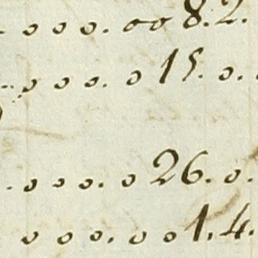 . o o o. oo 8. 2.
o o o. o 15. o.
. o o o. o 26. o.
o o o. o o 1. 4.